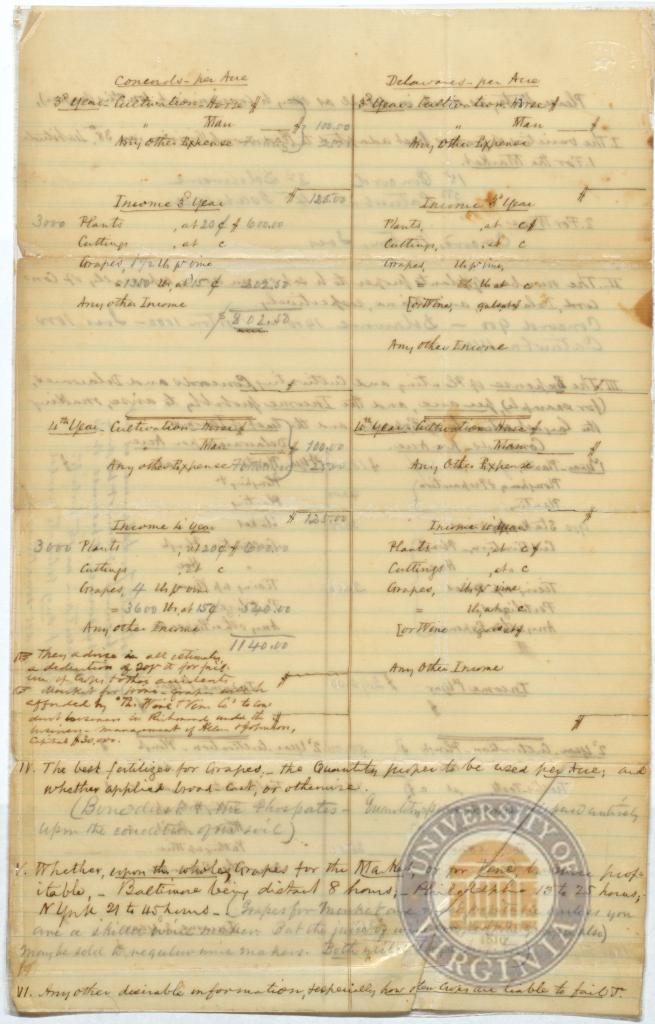 Concords - per Acre
3d Year - Cultivation - Horse $
" Man
$ 100.00
Any Other Expense
$ 125.00
Income 3d Year
3000 Plants , at 20¢ $ 600.00
Cuttings , at c
Grapes, 1 1/2 lb pr vine
= 1350 lb, at 15¢ 202.50
Any other Income
$ 802.50
4th Year - Cultivation - Horse $
" Man
$ 100.00
Any other Expense
$ 125.00
Income 4th Year
3000 Plants , at 20¢ $ 600.00
Cuttings , at c
Grapes, 4 lb pr vine
= 3600 lbs, at 15¢ 540.00
Any other Income
1140.00
They advise in all estimates
a deduction of 20 pr ct for fail-
ure of crops & other accidents.
Market for grapes
afforded by "The Wine & Vine Co" to con
duct business in Richmond under the
business management of Allen & Johnson,
Capital $30,000.
Delawares - per Acre
3d Year - Cultivation - Horse $
" Man $
Any Other Expense
$
Income 3d Year
Plants, , at c $
Cuttings, , at c
Grapes, lb pr vine,
lb, at c
[or Wine, gals, at
Any other Income
$
4th Year - Cultivation - Horse $
" Man
Any Other Expense
$
Income 4th Year
Plants , at c $
Cuttings , at c
Grapes, lb pr vine,
= lb, at c
[or Wine gals, at
Any Other Income
$
IV. The best fertilizer for Grapes, - the Quantity proper to be used per Acre; and
whether applied broad-cast, or otherwise.
(Bone dust & the Phospates - Quantity entirely
upon the condition of the soil)
V. Whether, upon the whole, Grapes for the Market, or for Wine, be more prof-
itable, - Baltimore being distant 8 hours, - Philadelphia 13 to 25 hours,
N York 21 to 45 hours - (Grapes for Market unless you
are a skilled wine maker. But the juice also)
may be sold to regular wine makers. Both
VI. Any other desirable information, & especially, how often Grapes are liable to fail &c.
UNIVERSITY OF VIRGINIA
1819